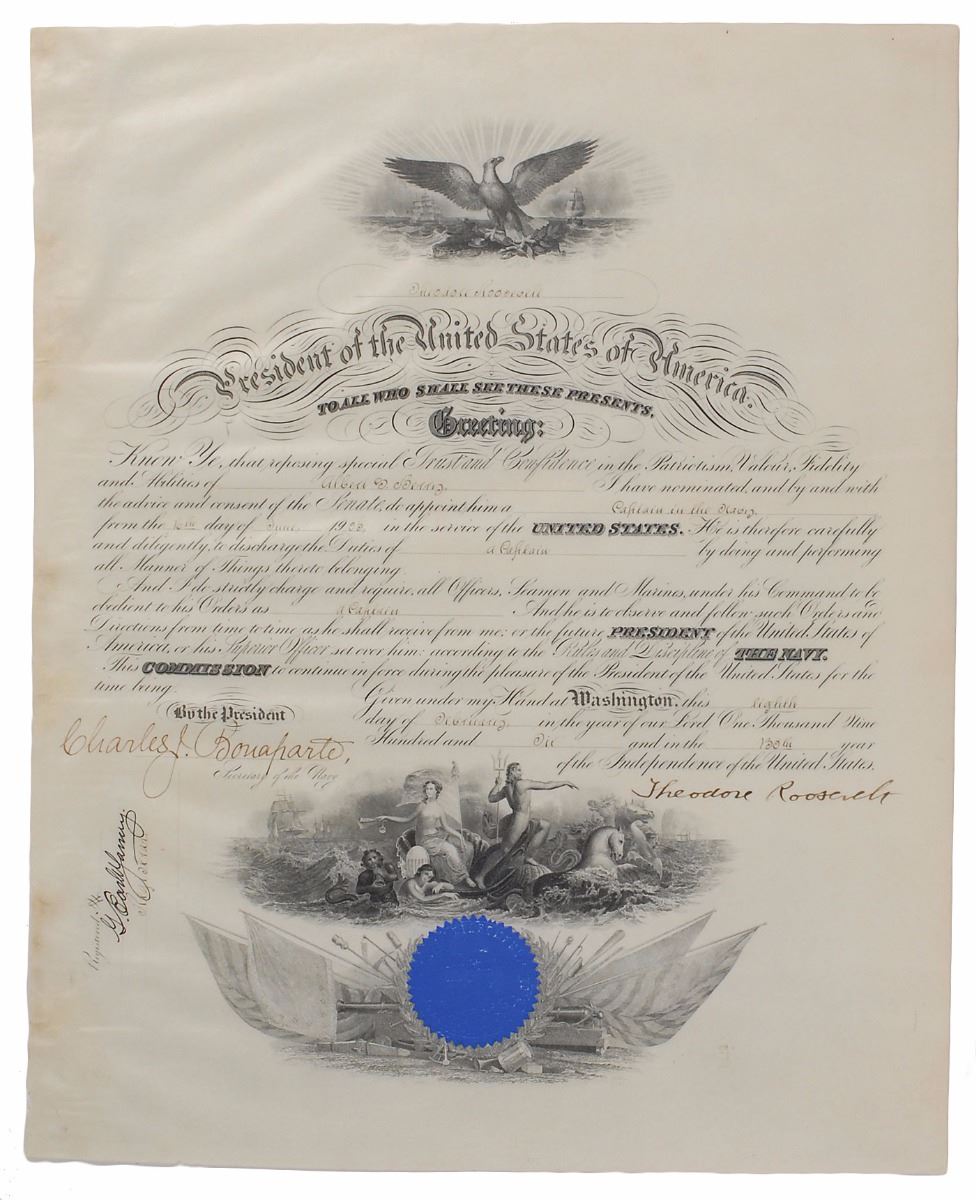 Theodore Roosevelt
President of the United States of America.
TO ALL WHO SHALL SEE THESE PRESENTS,
Greeting:
Know Ye, that reposing special Trust and Confidence in the Patriotism, Valour, Fidelity
and Abilities of Albert I have nominated, and by and with
the advice and consent of the Senate, do appoint him a Captain in the Navy
from the day of June 190 in the service of the UNITED STATES. He is therefore carefully
and diligently to discharge the Duties of a Captain by doing and performing
all Manner of Things thereto belonging.
And I do strictly charge and require all Officers, Seamen and Marines, under his Command to be
obedient to his Orders as a Captain And he is to observe and follow such Orders and
Directions from time to time as he shall receive from me, or the future PRESIDENT of the United States of
America, or his Superior Officer set over him, according to the Rules and Discipline of THE NAVY.
This COMMISSION to continue in force during the pleasure of the President of the United States for the
time being.
Given under my Hand at Washington, this eighth
By the President
day of February in the year of our Lord One Thousand Nine
Charles J. Bonaparte,
Hundred and Six and in the 130th year
Secretary of the Navy
of the Independence of the United States.
Theodore Roosevelt
Registered.